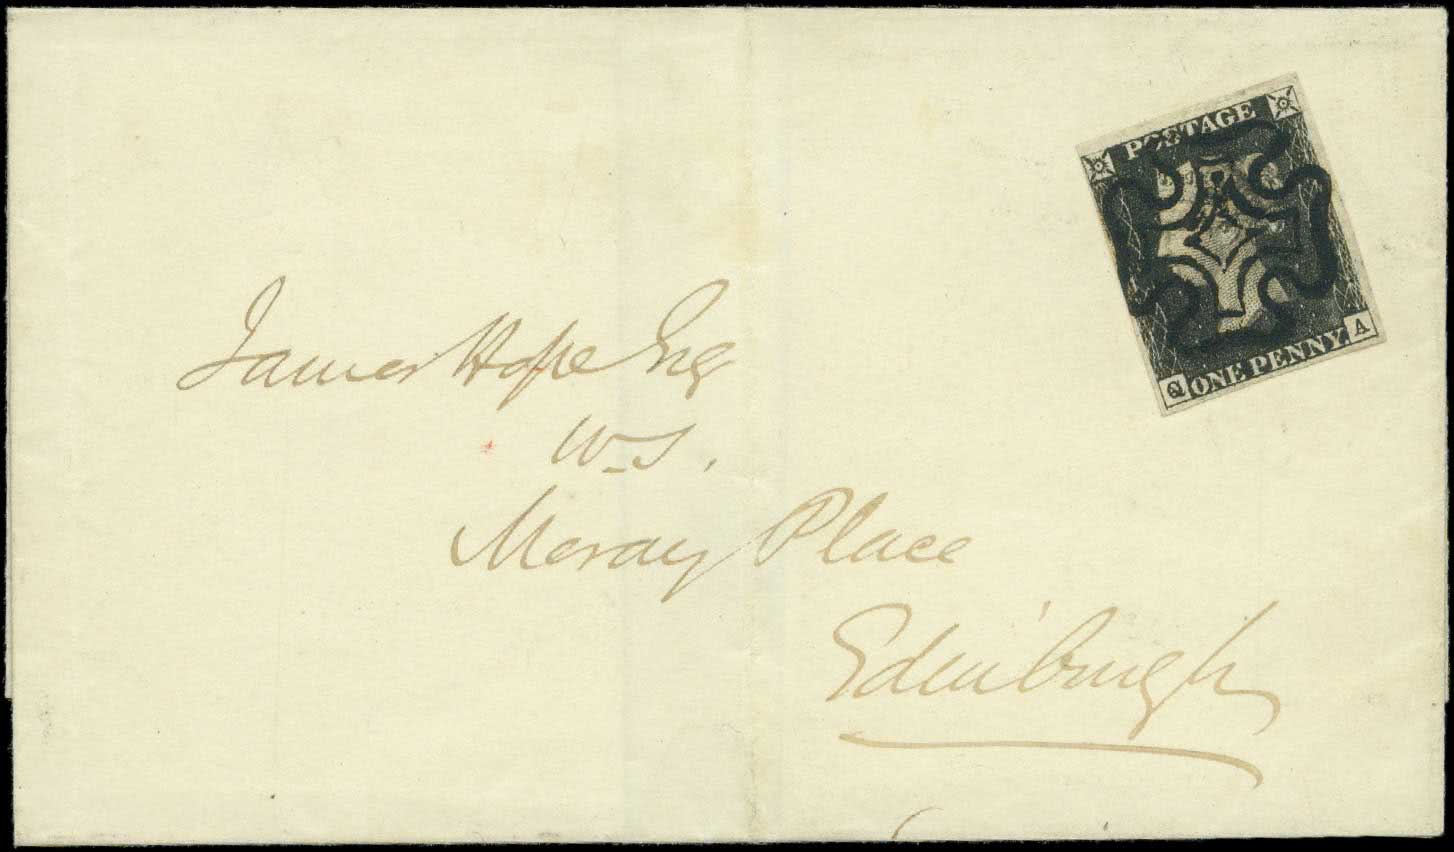 POSTAGE
Q ONE PENNY. A
James Hope Esq
W.S.
Moray Place
Edinburgh